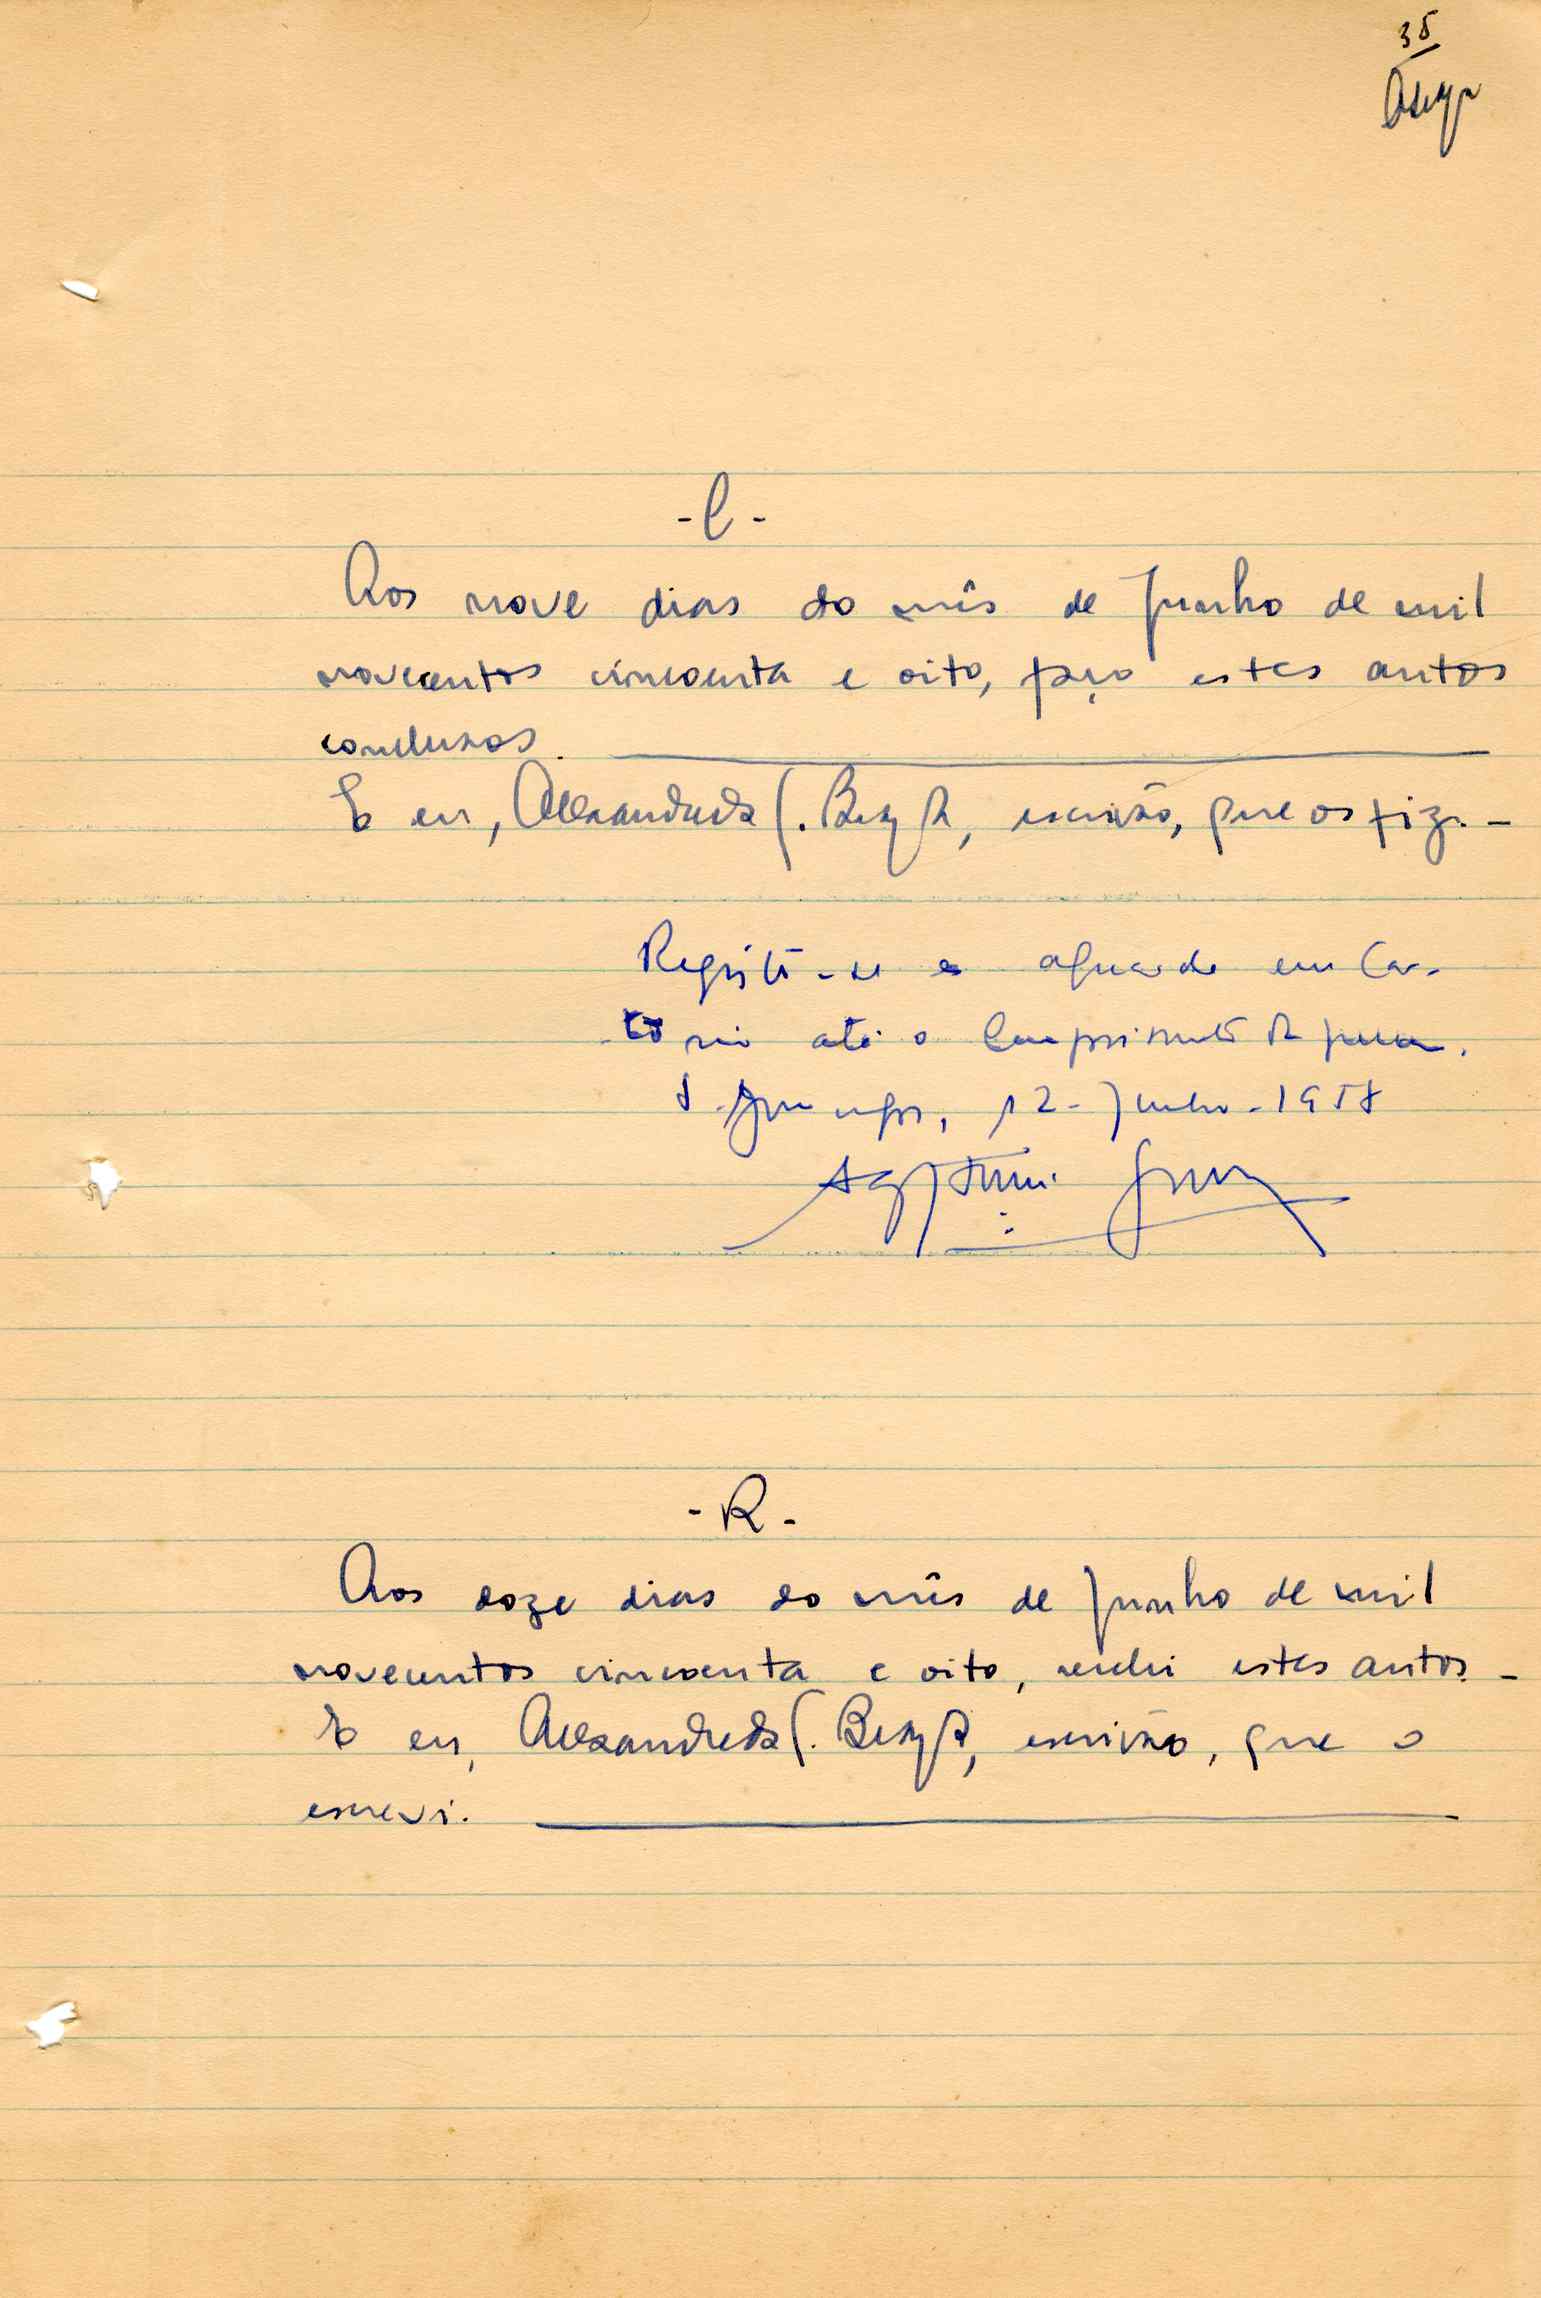 35
- C -
Aos nove dias do mês de Junho de mil
novecentos cincoenta e oito, faço estes autos
conclusos.
E eu, Alexandre da C. , escrivão, que os fiz. -
Registe-se e aguarde em Car-
tório até o cumprimento da pena.
12 - Junho - 1958
- R -
Aos doze dias do mês de Junho de mil
novecentos cincoenta e oito, recebi estes autos. -
E eu, Alexandre da C. , escrivão, que o
escrevi.